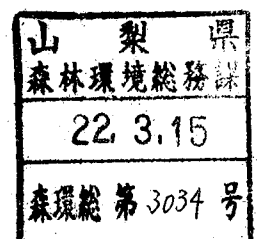 山梨県
森林環境総務課
22.3.15
森環総第3034号